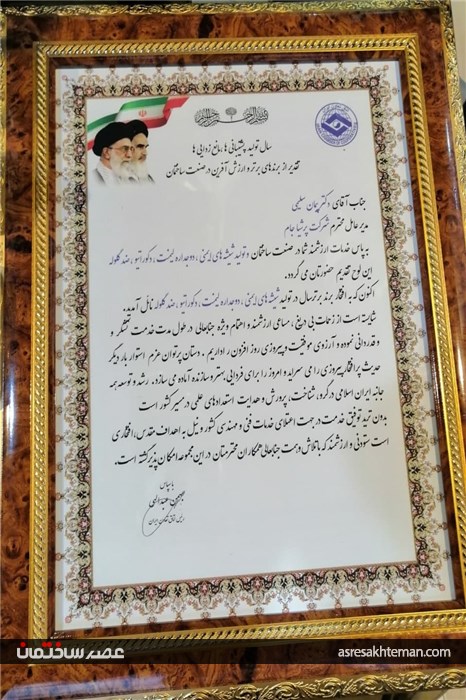 سال تولید، پشتیبانی ها، مانع زدایی ها
تقدیر از برندهای برتر و ارزش آفرین در صنعت ساختمان
جناب آقای دکتر پیمان سلیمی
مدیر عامل محترم شرکت پرشیا جام
به پاس خدمات ارزشمند شما در صنعت ساختمان و تولید شیشه های ایمنی، دوجداره یلفت، دکوراتیو، ضد گلوله
این لوح تقدیم حضورتان می گردد.
اکنون که به افتخار برند برتر سال در تولید شیشه های ایمنی، دوجداره، دکوراتیو، ضد گلوله نائل آمدید.
شایسته است از زحمات بی دریغ، مساعی ارزشمند و اهتمام ویژه جنابعالی در طول مدت خدمت تشکر
و قدردانی نموده و آرزوی موفقیت و پیروزی روز افزون را داریم. دستان پرتوان عزم استوار بار دیگر
حدیث پر افتخار پیروزی را می سراید و امروز را برای فردایی بهتر و سازنده آماده می سازد. رشد و توسعه همه
جانبه ایران اسلامی در گرو، شناخت، پرورش و هدایت استعدادهای علمی در مسیر کشور است
بدون تردید توفیق خدمت در جهت اعتلای خدمات فنی و مهندسی کشور و نیل به اهداف مقدس، افتخاری
است ستودنی و ارزشمند که با تلاش و همت جنابعالی همکاران محترمتان در این مجموعه امکان پذیر گشته است.
با سپاس
بهمن عبدالهی
رئیس اتاق تعاون ایران
عصر ساختمان
asresakhteman.com